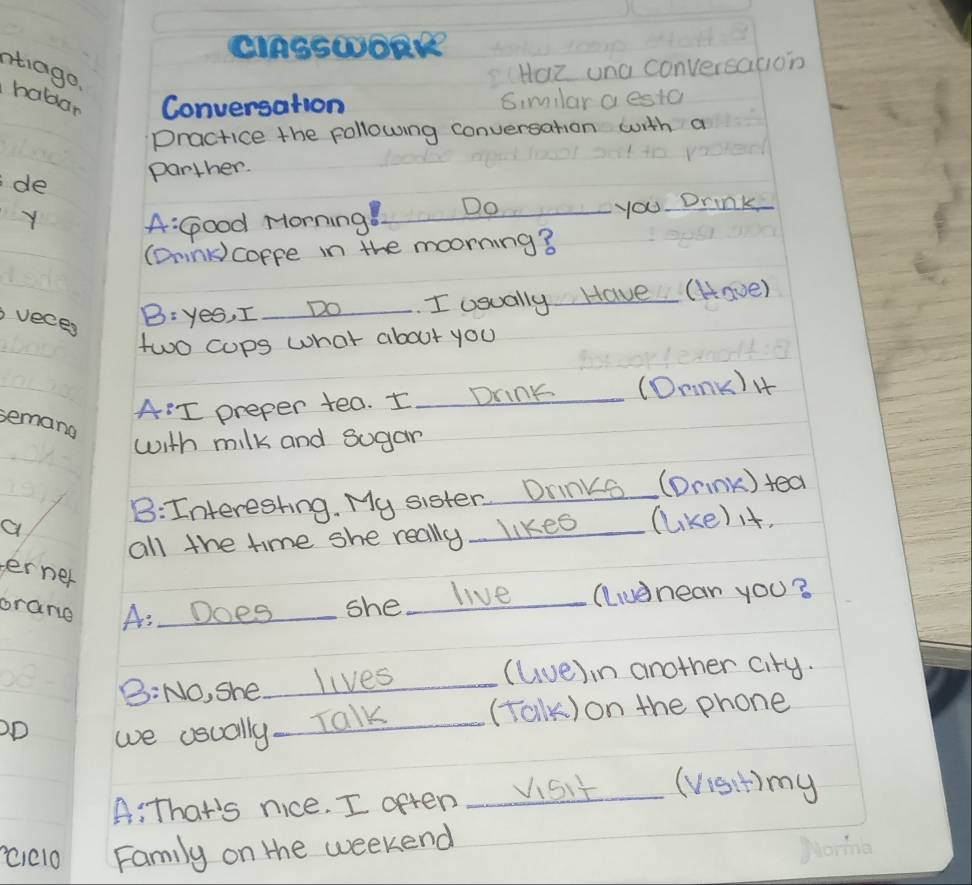 CLASSWORK
Haz una conversación
Similar a esta
Conversation
Practice the following conversation with a
parther.
A: Good Morning! Do you Drink
(Drink) coffe in the moorning?
B: yes, I Do. I usually Have (Have)
two cups what about you
A: I preper tea. I Drink (Drink) it
with milk and sugar
B: Interesting. My sister Drinks (Drink) tea
all the time she really likes (Like) it.
A: Does she live (Live) near you?
B: No, she lives (Live) in another city.
we usually Talk (Talk) on the phone
A: That's nice. I often Visit (Visit) my
Family on the weekend
ntiago.
hablar
de
y
veces
semana
a
ernet
Norma